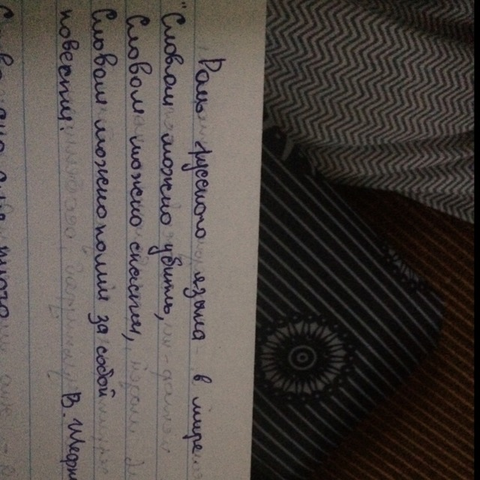 Роль русского языка в мире
"Словом можно убить,
Словом можно спасти,
Словом можно полки за собой
повести". В. Шефн